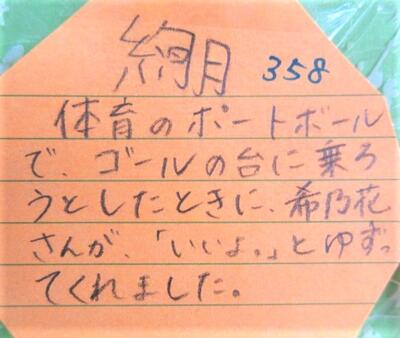 絢月 358
体育のポートボール
で、ゴールの台に乗ろ
うとしたときに、希乃花
さんが、「いいよ。」とゆずっ
てくれました。